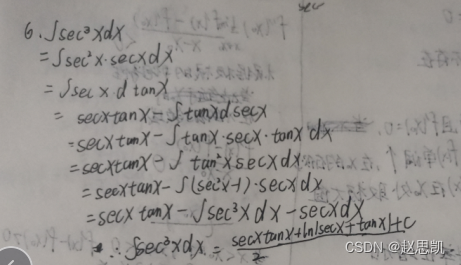 6. ∫sec³xdx
= ∫sec²x·secxdx
= ∫secx d tanx
= secxtanx - ∫tanxdsecx
= secxtanx - ∫tanx·secx·tanx dx
= secxtanx - ∫tan²xsecxdx
= secxtanx - ∫(sec²x-1)·secxdx
= secx tanx - ∫sec³xdx - secxdx
∴ ∫sec³xdx = secxtanx+ln|secx+tanx|+C
2
CSDN @赵思凯